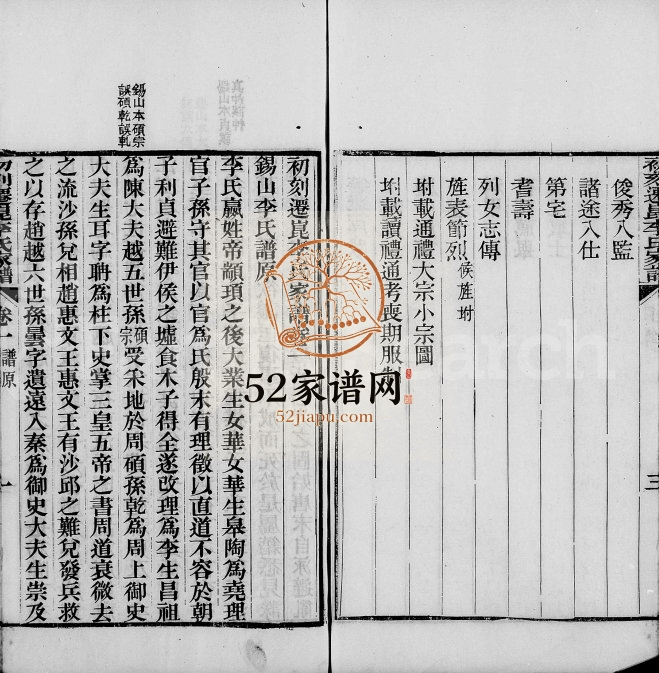 俊秀入監
諸途入仕
第宅
耆壽
列女志傳
旌表節烈 侯旌坿
坿載通禮大宗小宗圖
坿載讀禮通考喪期服制
三
初刻遷崑李氏家譜
錫山李氏譜原
李氏嬴姓帝顓頊之後大業生女華女華生皋陶為堯理
官子孫守其官以官為氏殷末有理徵以直道不容於朝
子利貞避難伊侯之墟食木子得全遂改理為李生昌祖
為陳大夫越五世孫碩宗受采地於周碩孫乾為周上御史
大夫生耳字聃為柱下史掌三皇五帝之書周道衰微去
之流沙孫兌相趙惠文王惠文王有沙邱之難兌發兵救
之以存趙越六世孫曇字遺遠入秦為御史大夫生崇及
錫山本碩宗
誤碩乾誤軌
初刻遷崑李氏家譜
卷一 譜原
一
52家谱网
52jiapu.com